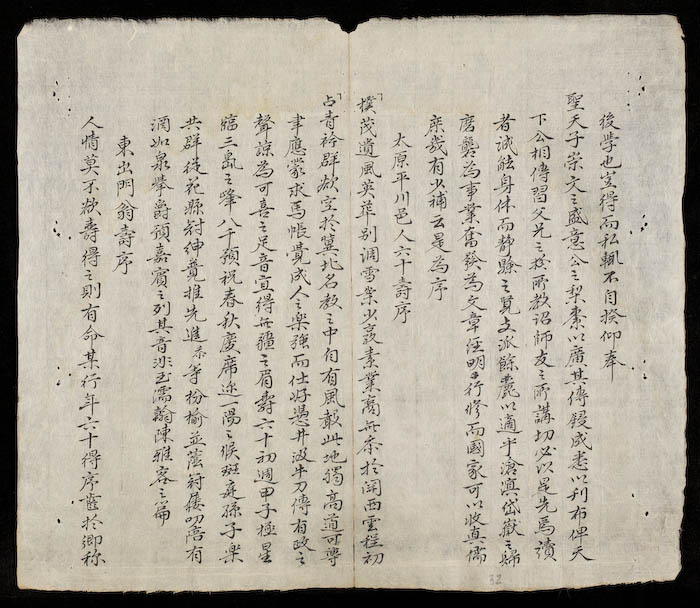 後學也豈得而私輒不自揆仰奉
聖天子崇文之盛意公之梨棗以廣其傳鋟成悉以刊布俾天
下公相傳習父兄之所教詔師友之所講切必以是先焉讀
者誠能身体而靜驗之覽支派餘裔以適乎滄溟岱嶽之歸
磨礱為事業奮發為文章經明行修而國家可以收真儒
庶幾有少補云是為序
太原平川邑人六十壽序
樸茂遺風英華別調雪業少敦素業商無於關西雲程初
占青衿群欲空於冀北名教之中自有風敢此地獨高道可尊
聿應蒙求馬帳覺成人之樂強而仕好憑井汲牛刀傳有政之
聲諒為可喜之足音宜得無疆之眉壽六十初週甲子極星
臨三島之峰八千預祝春秋慶席迎一陽之候斑庭孫子樂
共群從花縣紳推先進忝等枌榆並蔭叨有
酒如泉擧爵預嘉賓之列其音玉濡翰陳雅容之篇
東出門翁壽序
人情莫不欲壽得之則有命某行年六十得序齒於鄉称
32